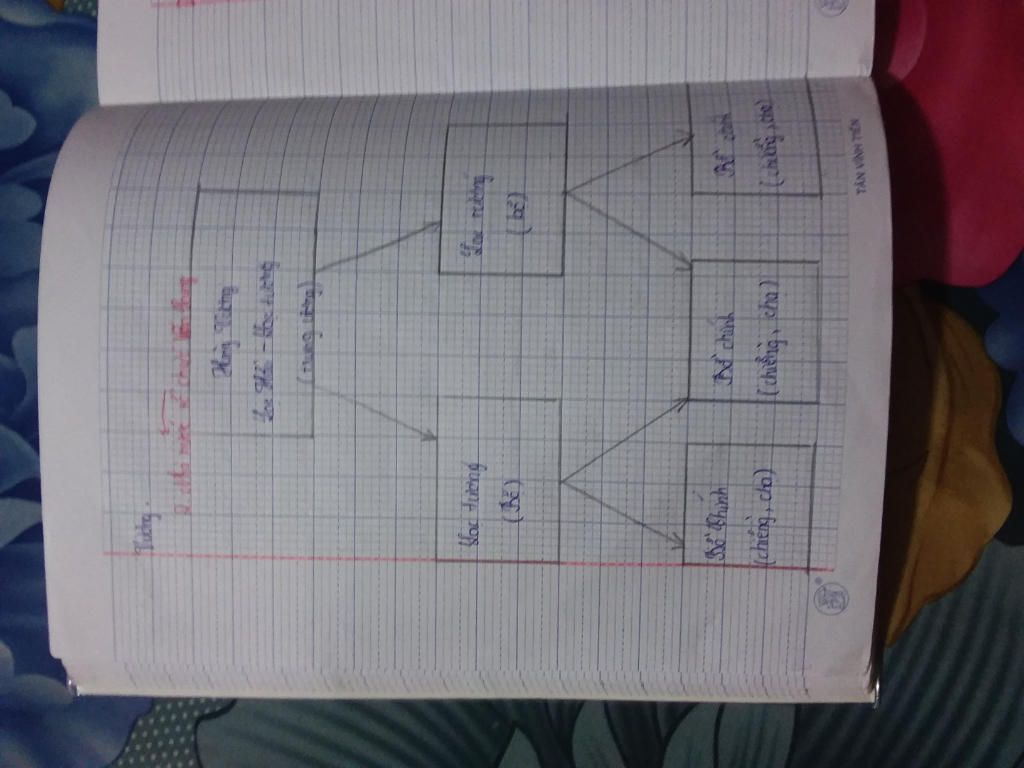 Vương.
Ω của nước Văn Lang
Hùng Vương
Lạc Hầu - Lạc tướng
(trung ương)
Lạc tướng
(Bộ)
Lạc tướng
(bộ)
Bồ chính
(chiềng, chạ)
Bồ chính
(chiềng, chạ)
Bồ chính
(chiềng, chạ)
TÂN VĨNH TIẾN